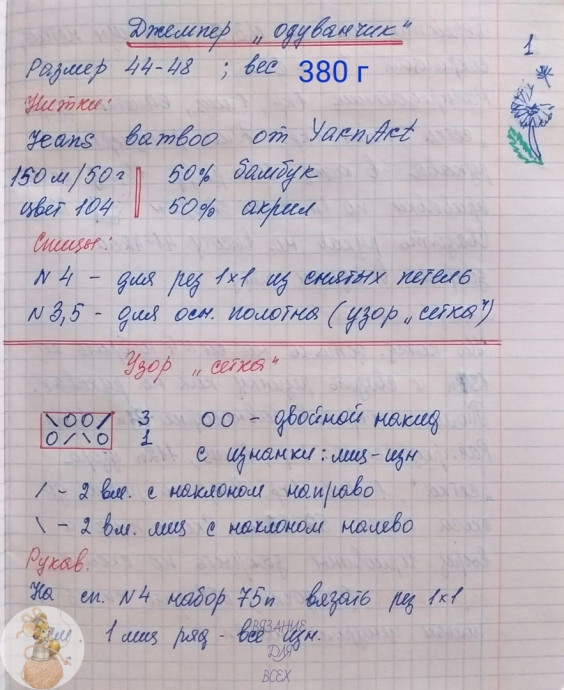 Джемпер „одуванчик“
1
Размер 44-48 ; вес 380 г
Нитки:
Jeans bamboo от YarnArt
150м/50г 50% бамбук
цвет 104 50% акрил
Спицы:
N 4 - для рез 1×1 из снятых петель
N 3,5 - для осн. полотна (узор „сетка“)
Узор „сетка“
\OO/ 3 OO - двойной накид
O/\O 1
с изнанки: лиц-изн
/ - 2 вм. с наклоном направо
\ - 2 вм. лиц с наклоном налево
Рукав.
На сп. N4 набор 75п вязать рез 1×1
1 лиц ряд - все изн.
ВЯЗАНИЕ
ДЛЯ
ВСЕХ